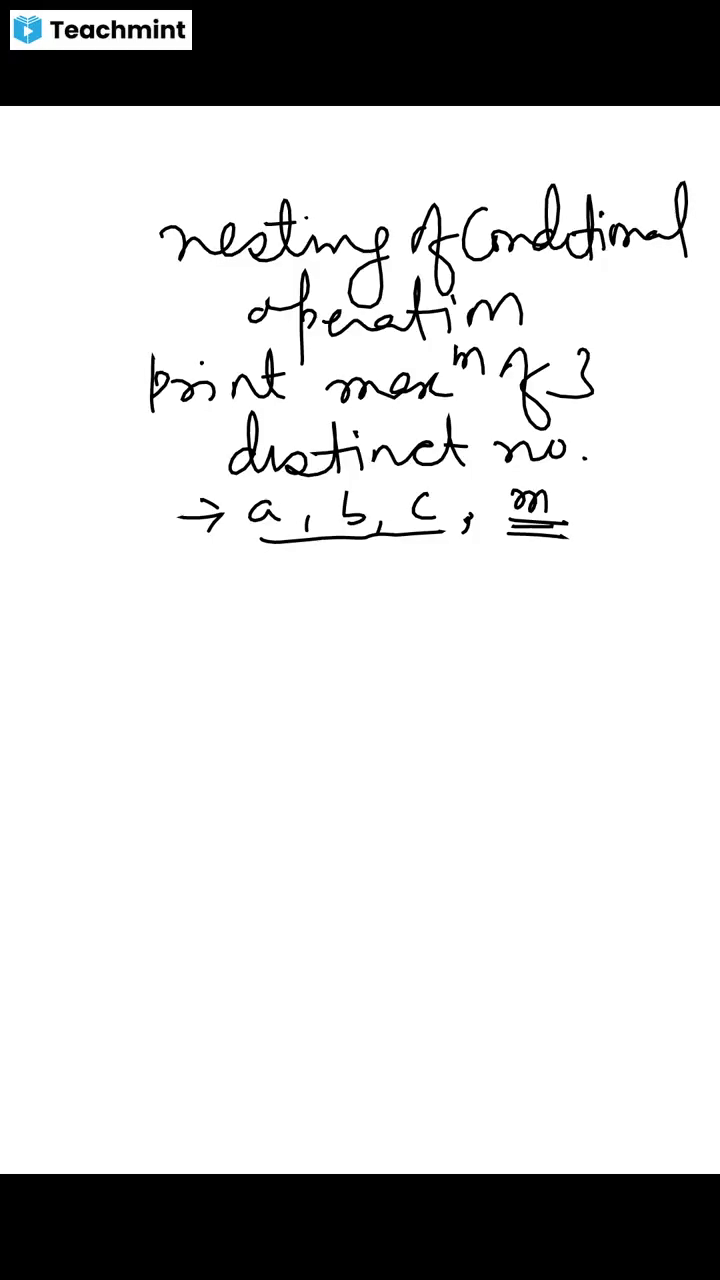 Teachmint
nesting of Conditional
operation
print maxm of 3
distinct no.
→ a, b, c, m